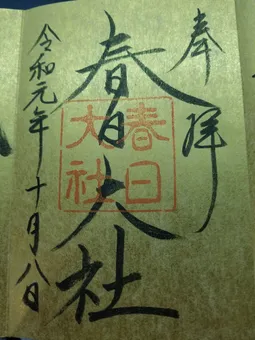 奉拝
春日大社
春日大社
令和元年十月八日